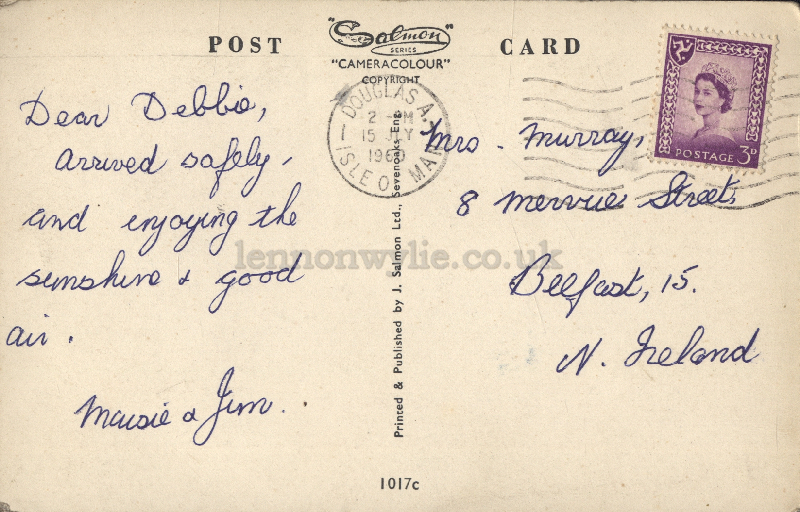 POST CARD
"Salmon"
SERIES
"CAMERACOLOUR"
COPYRIGHT
DOUGLAS
2 - PM
15 JLY
1960
ISLE OF MAN
POSTAGE 3D
Dear Debbie,
arrived safely,
and enjoying the
sunshine & good
air.
Maisie & Jim.
Printed & Published by J. Salmon Ltd., Sevenoaks, Eng.
Mrs. Murray,
8 Mervue Street,
Belfast, 15.
N. Ireland
lennonwylie.co.uk
1017c